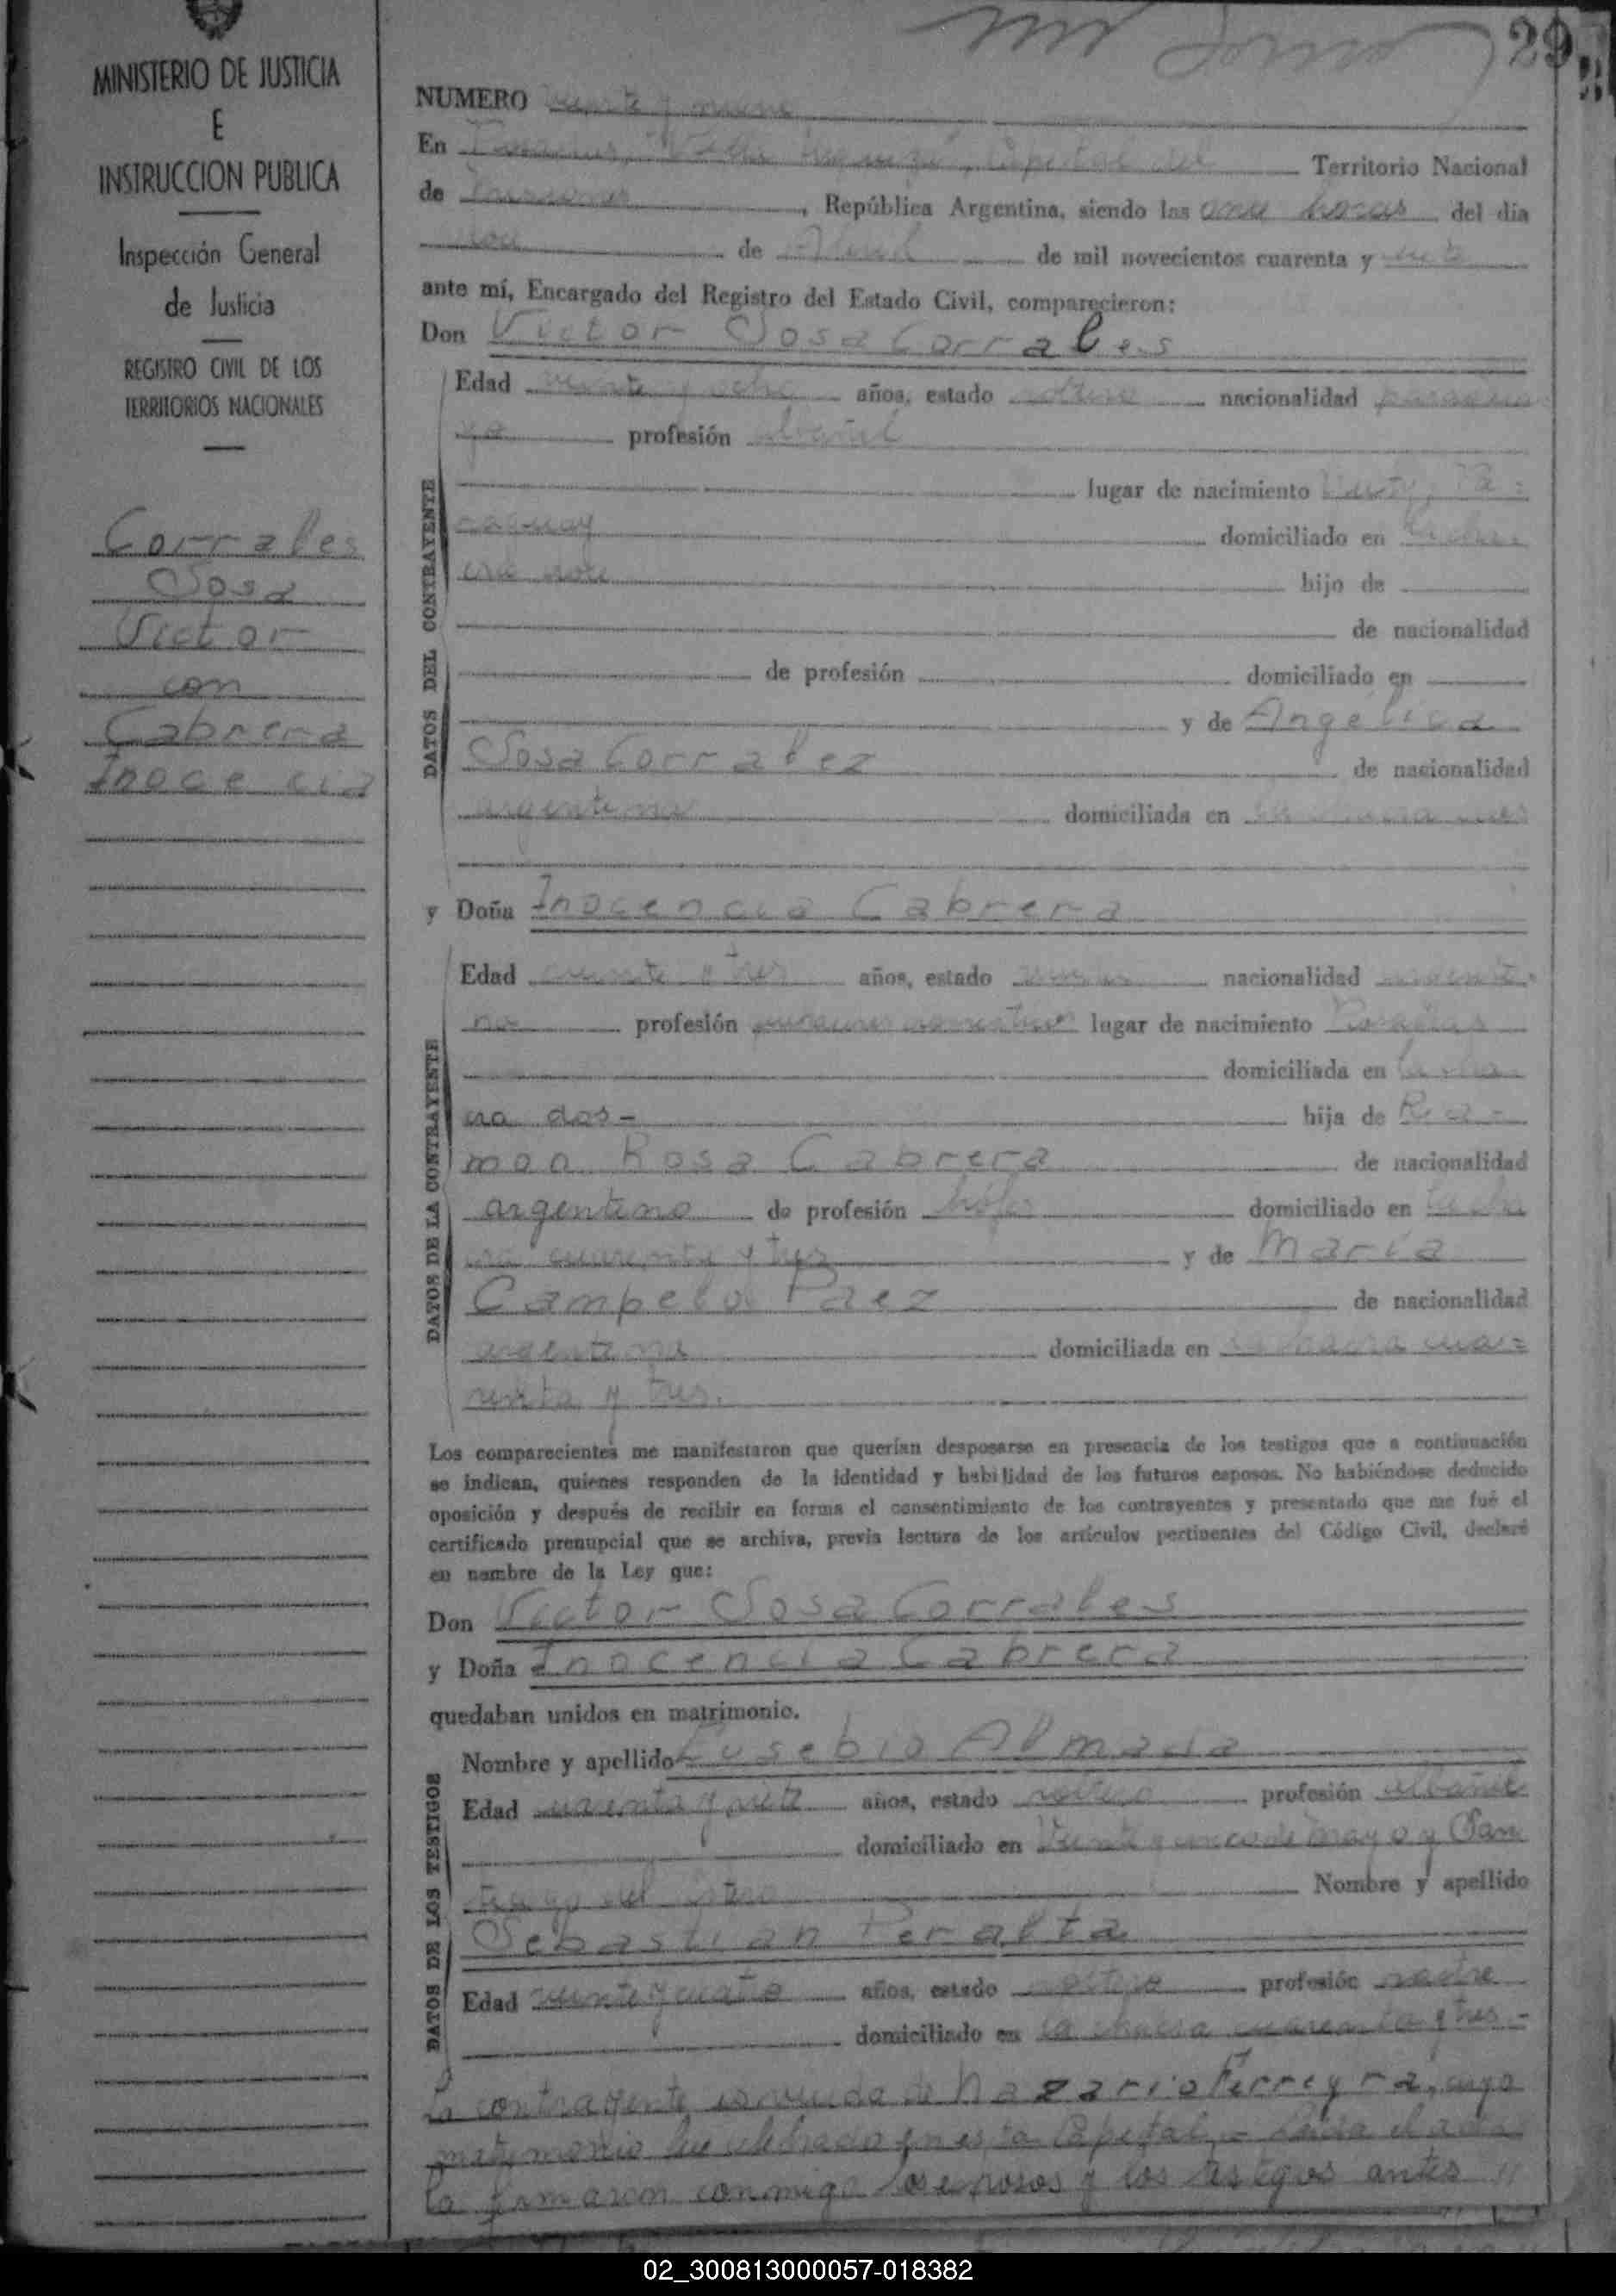 29
MINISTERIO DE JUSTICIA
E
INSTRUCCION PUBLICA
Inspección General
de Justicia
REGISTRO CIVIL DE LOS
TERRITORIOS NACIONALES
Corrales
Sosa
Victor
con
Cabrera
Inocencia
NUMERO veinte y nueve
En Posadas, Capital del Territorio Nacional
de Misiones, República Argentina, siendo las once horas del día
de Abril de mil novecientos cuarenta y siete
ante mí, Encargado del Registro del Estado Civil, comparecieron:
Don Victor Sosa Corrales
DATOS DEL CONTRAYENTE
Edad veinte y ocho años, estado soltero nacionalidad paragua
ya profesión albañil
lugar de nacimiento Pa=
raguay domiciliado en la cha
cra dos hijo de
de nacionalidad
de profesión domiciliado en
y de Angélica
Sosa Corralez de nacionalidad
argentina domiciliada en la chacra dos
y Doña Inocencia Cabrera
DATOS DE LA CONTRAYENTE
Edad veinte y tres años, estado viuda nacionalidad argenti-
na profesión quehaceres domésticos lugar de nacimiento Posadas
domiciliada en la cha
cra dos- hija de Ra-
mon Rosa Cabrera de nacionalidad
argentino de profesión domiciliado en la cha
cra cuarenta y tres y de Maria
Campelo Paez de nacionalidad
argentina domiciliada en la chacra cua=
renta y tres.
Los comparecientes me manifestaron que querían desposarse en presencia de los testigos que a continuación
se indican, quienes responden de la identidad y habilidad de los futuros esposos. No habiéndose deducido
oposición y después de recibir en forma el consentimiento de los contrayentes y presentado que me fué el
certificado prenupcial que se archiva, previa lectura de los artículos pertinentes del Código Civil, declaré
en nombre de la Ley que:
Don Victor Sosa Corrales
y Doña Inocencia Cabrera
quedaban unidos en matrimonio.
DATOS DE LOS TESTIGOS
Nombre y apellido Eusebio Almada
Edad cuarenta y siete años, estado soltero profesión albañil
domiciliado en Veinte y cinco de Mayo y San
tiago del Estero Nombre y apellido
Sebastian Peralta
Edad veinte y cuatro años, estado soltero profesión sastre
domiciliado en la chacra cuarenta y tres-
La contrayente es viuda de Nazario Ferreyra, cuyo
matrimonio fue celebrado en esta Capital.- Leída el acta
la firmaron conmigo los esposos y los testigos antes
02_300813000057-018382